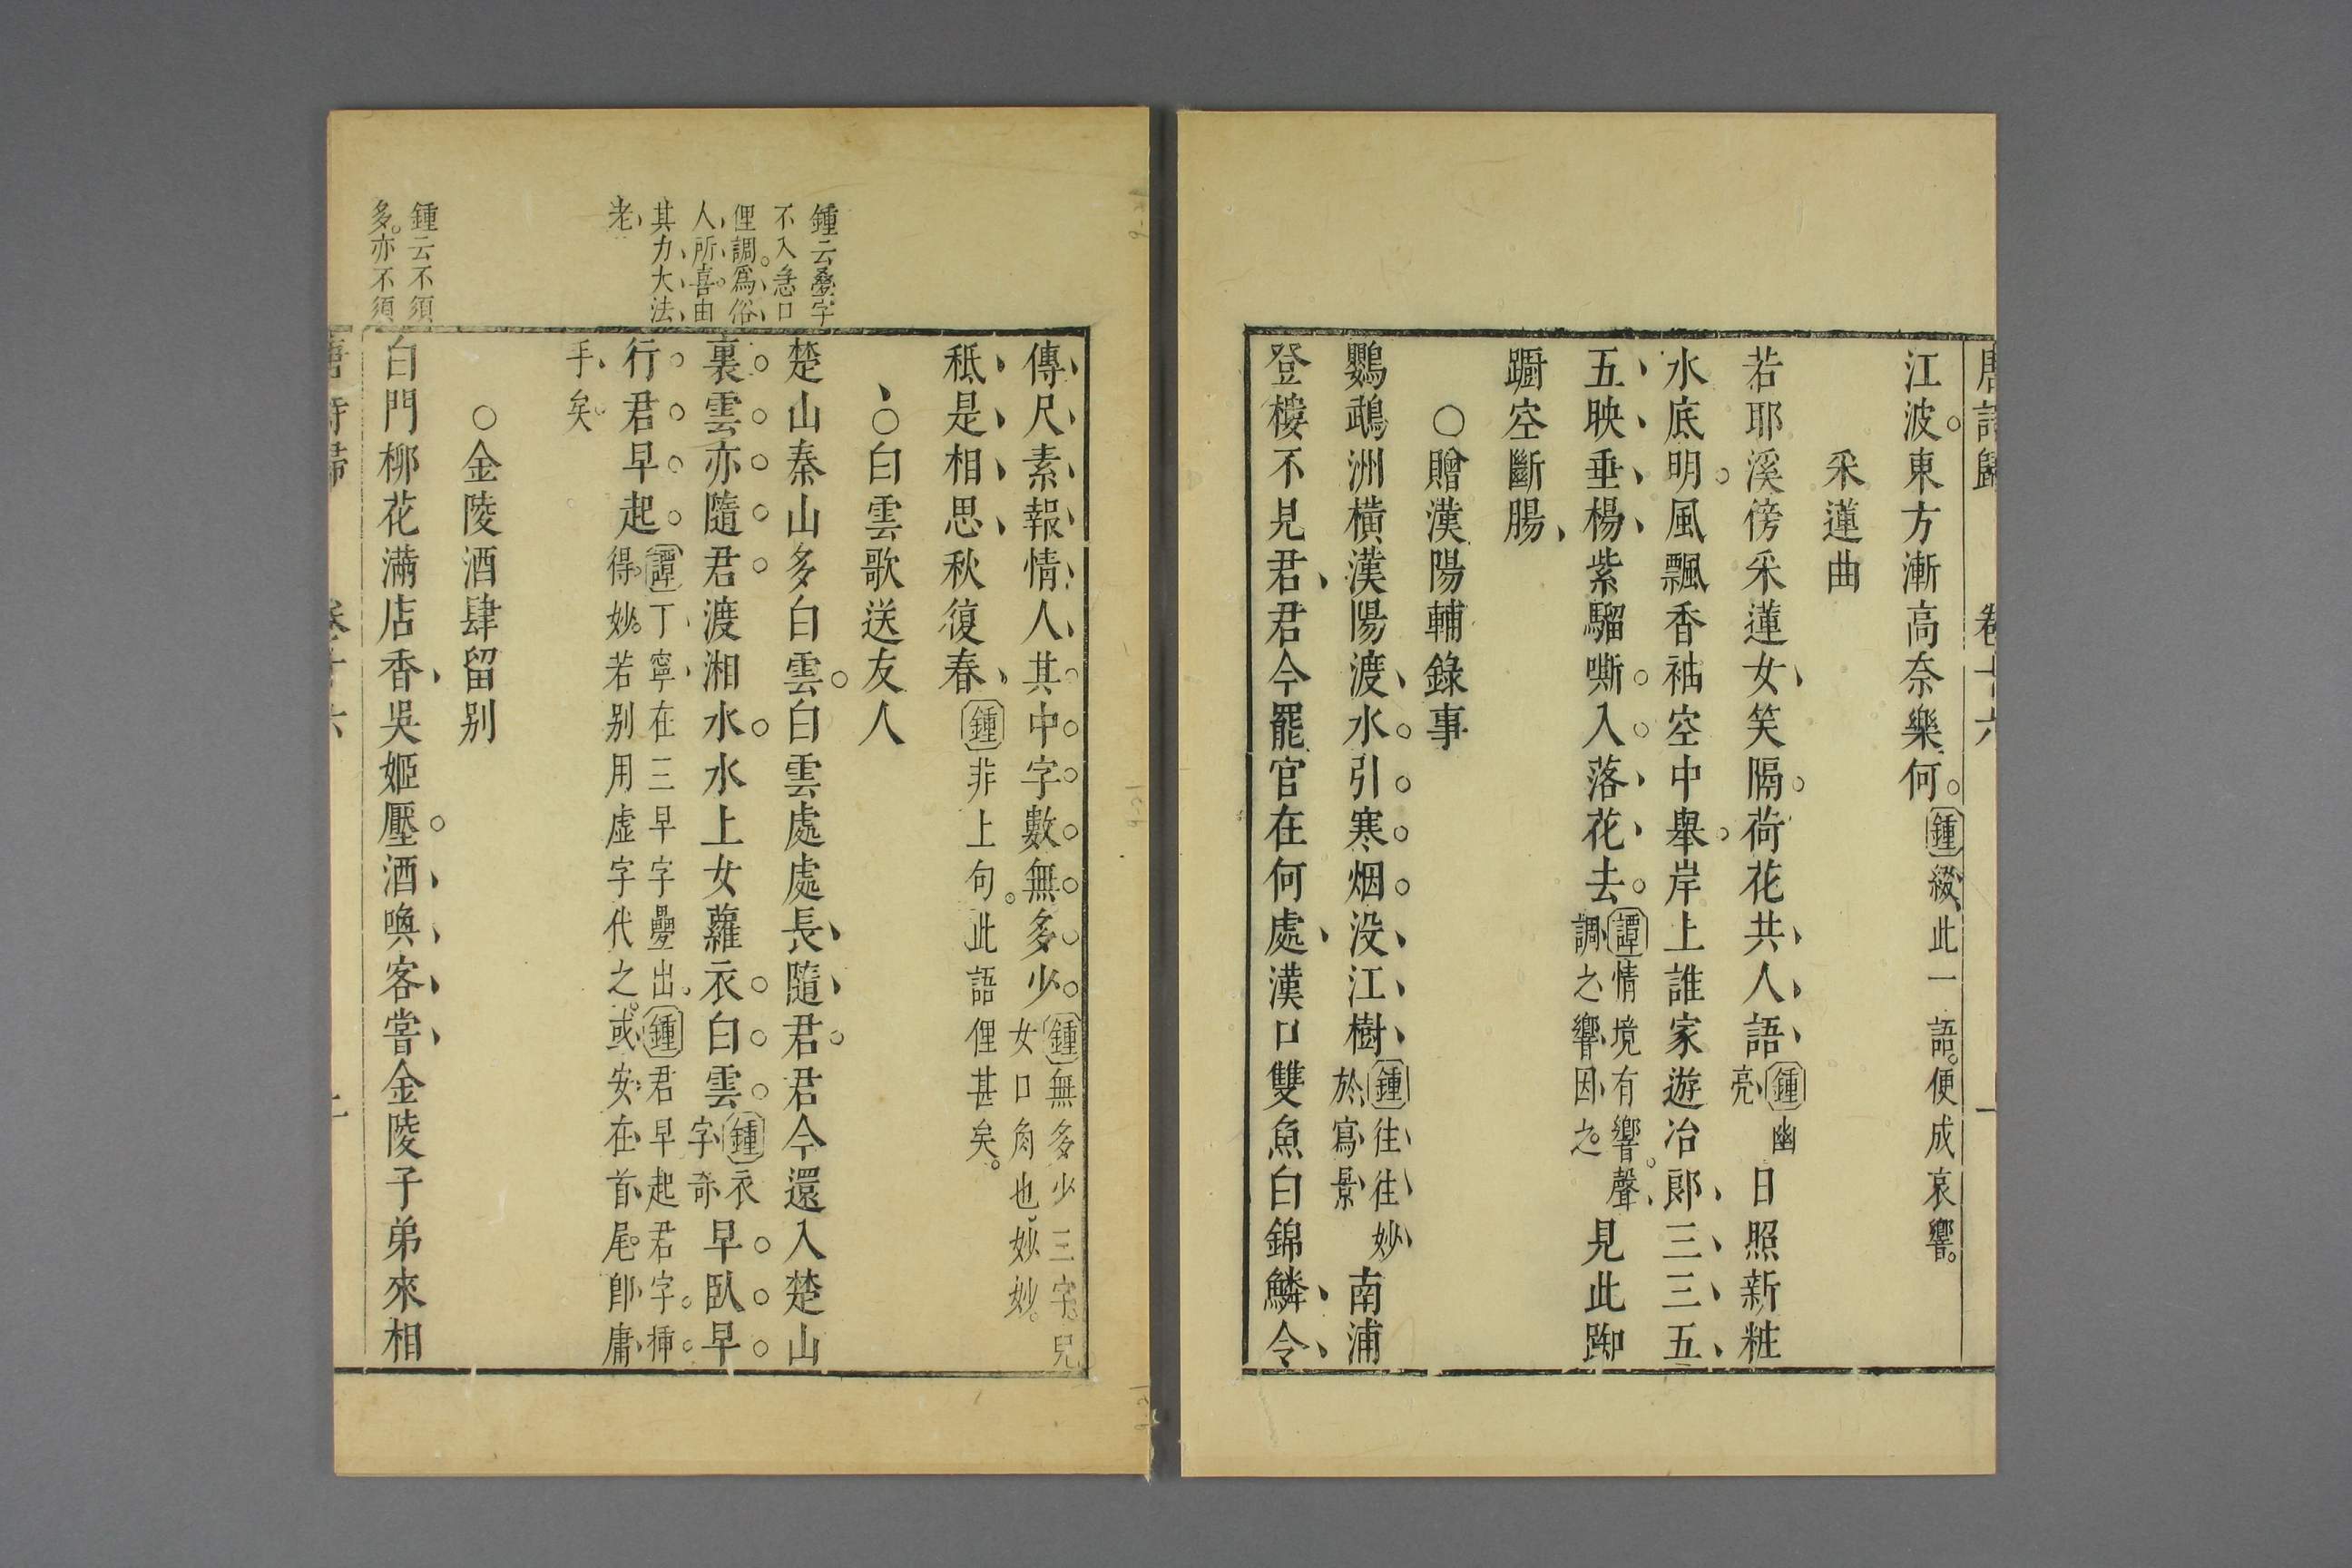 唐詩歸 卷十六 一
江波東方漸高奈樂何鍾綴此一語便成哀響
采蓮曲
若耶溪傍采蓮女笑隔荷花共人語鍾幽亮日照新粧
水底明風飄香袖空中舉岸上誰家遊冶郎三三五
五映垂楊紫騮嘶入落花去譚情境有響聲調之響因之見此踟
躕空斷腸
○贈漢陽輔錄事
鸚鵡洲橫漢陽渡水引寒烟没江樹鍾往往妙於寫景南浦
登樓不見君君今罷官在何處漢口雙魚白錦鱗令
傳尺素報情人其中字數無多少鍾無多少三字兒女口角也妙妙
秪是相思秋復春鍾非上句此語俚甚矣
○白雲歌送友人
鍾云疊字
不入急口
俚調爲俗
人所喜由
其力大法
老
楚山秦山多白雲白雲處處長隨君君今還入楚山
裏雲亦隨君渡湘水水上女蘿衣白雲鍾衣字奇早臥早
行君早起譚丁寧在三早字疊出得妙若别用虛字代之或安在首尾卽庸手矣鍾君早起君字挿
○金陵酒肆留别
鍾云不須
多亦不須
白門柳花滿店香吳姬壓酒喚客嘗金陵子弟來相